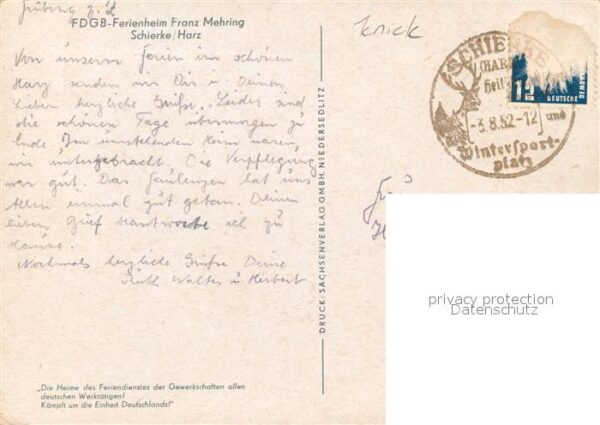 FDGB-Ferienheim Franz Mehring
Schierke/Harz
Von unseren Ferien im schönen
Harz senden wir Dir u. Deinen
Lieben herzliche Grüße. Leider sind
die schönen Tage übermorgen zu
Ende. Im umstehenden Heim waren
wir untergebracht. Die Verpflegung
war gut. Das Faulenzen hat uns
allen einmal gut getan. Deinen
lieben Brief beantworte ich zu
Hause.
Nochmals herzliche Grüße Deine
Ruth Walter u. Herbert
„Die Heime des Feriendienstes der Gewerkschaften allen
deutschen Werktätigen!
Kämpft um die Einheit Deutschlands!"
DRUCK: SACHSENVERLAG GMBH. NIEDERSEDLITZ
knick
SCHIERKE
(HARZ)
Heil-
-3.8.52-12
und
Wintersport-
platz
12
DEUTSCHE
privacy protection
Datenschutz